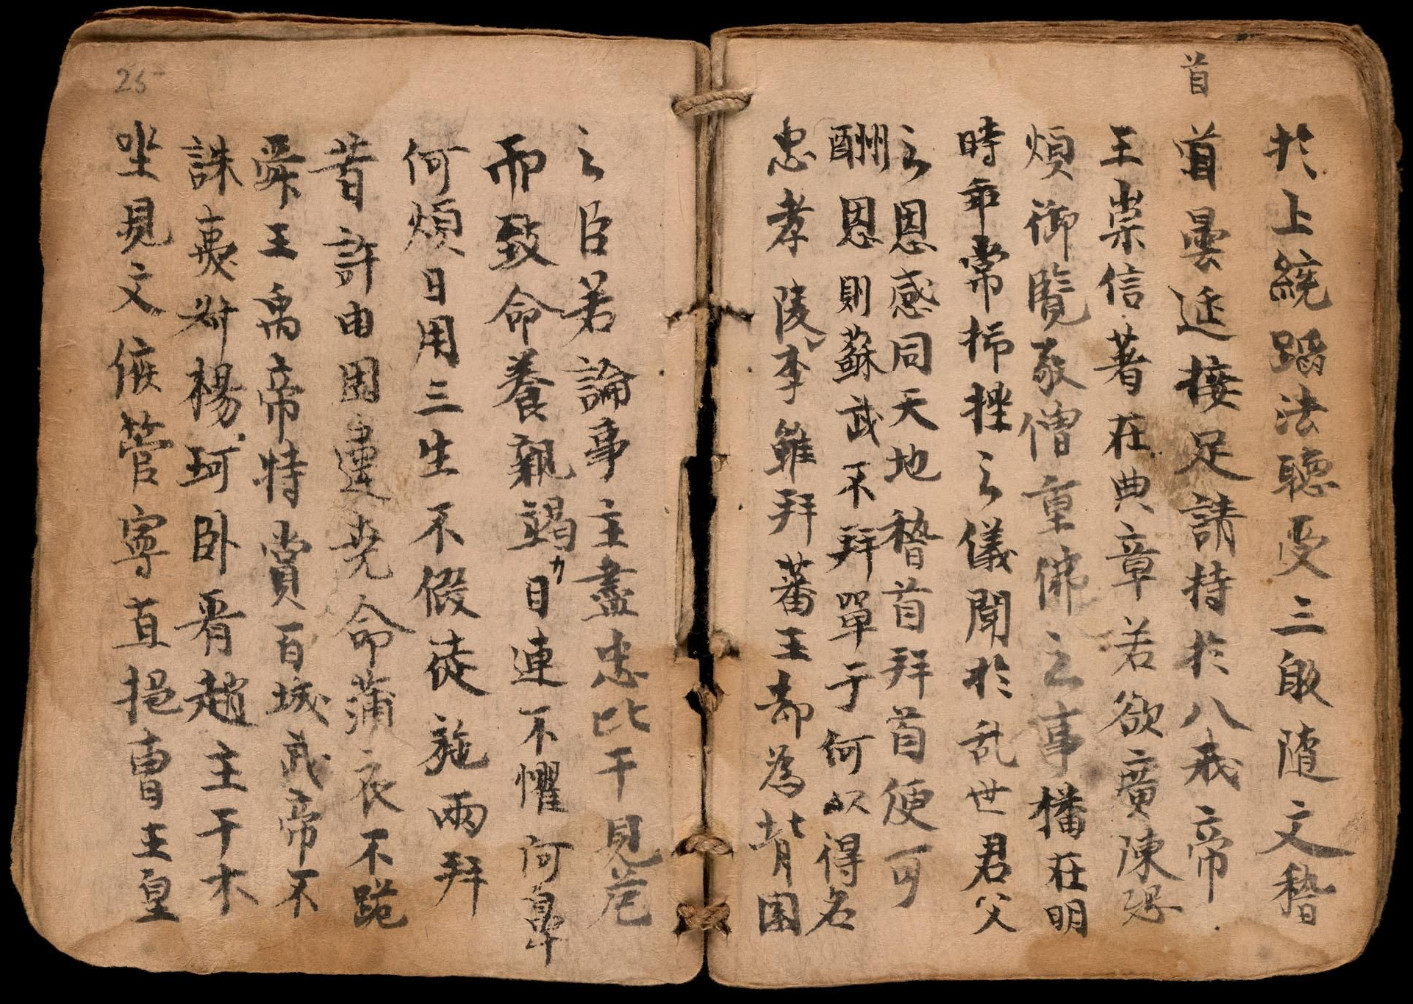 首
於上統蹈法聽受三敀随文稽
首曇延接足請持於八戒帝
王崇信著在典章若欲廣陳恐
煩御覧敬僧重佛之事播在明
時乖常抑挫之儀聞於乱世君父
之恩感同天地稽首拜首便可
酬恩則蘇武不拜單于何以得名
忠孝陵李雖拜蕃王却為背國
之臣若論事主盡忠比干見
而致命養親竭力目連不懼
何煩日用三生不假徒施兩拜
昔許由固違尭命蒲衣不跪
舜王禹帝特賞百城武帝不
誅 楊珂卧看趙主干木
坐見文侯管寧直揖曹主皇
25